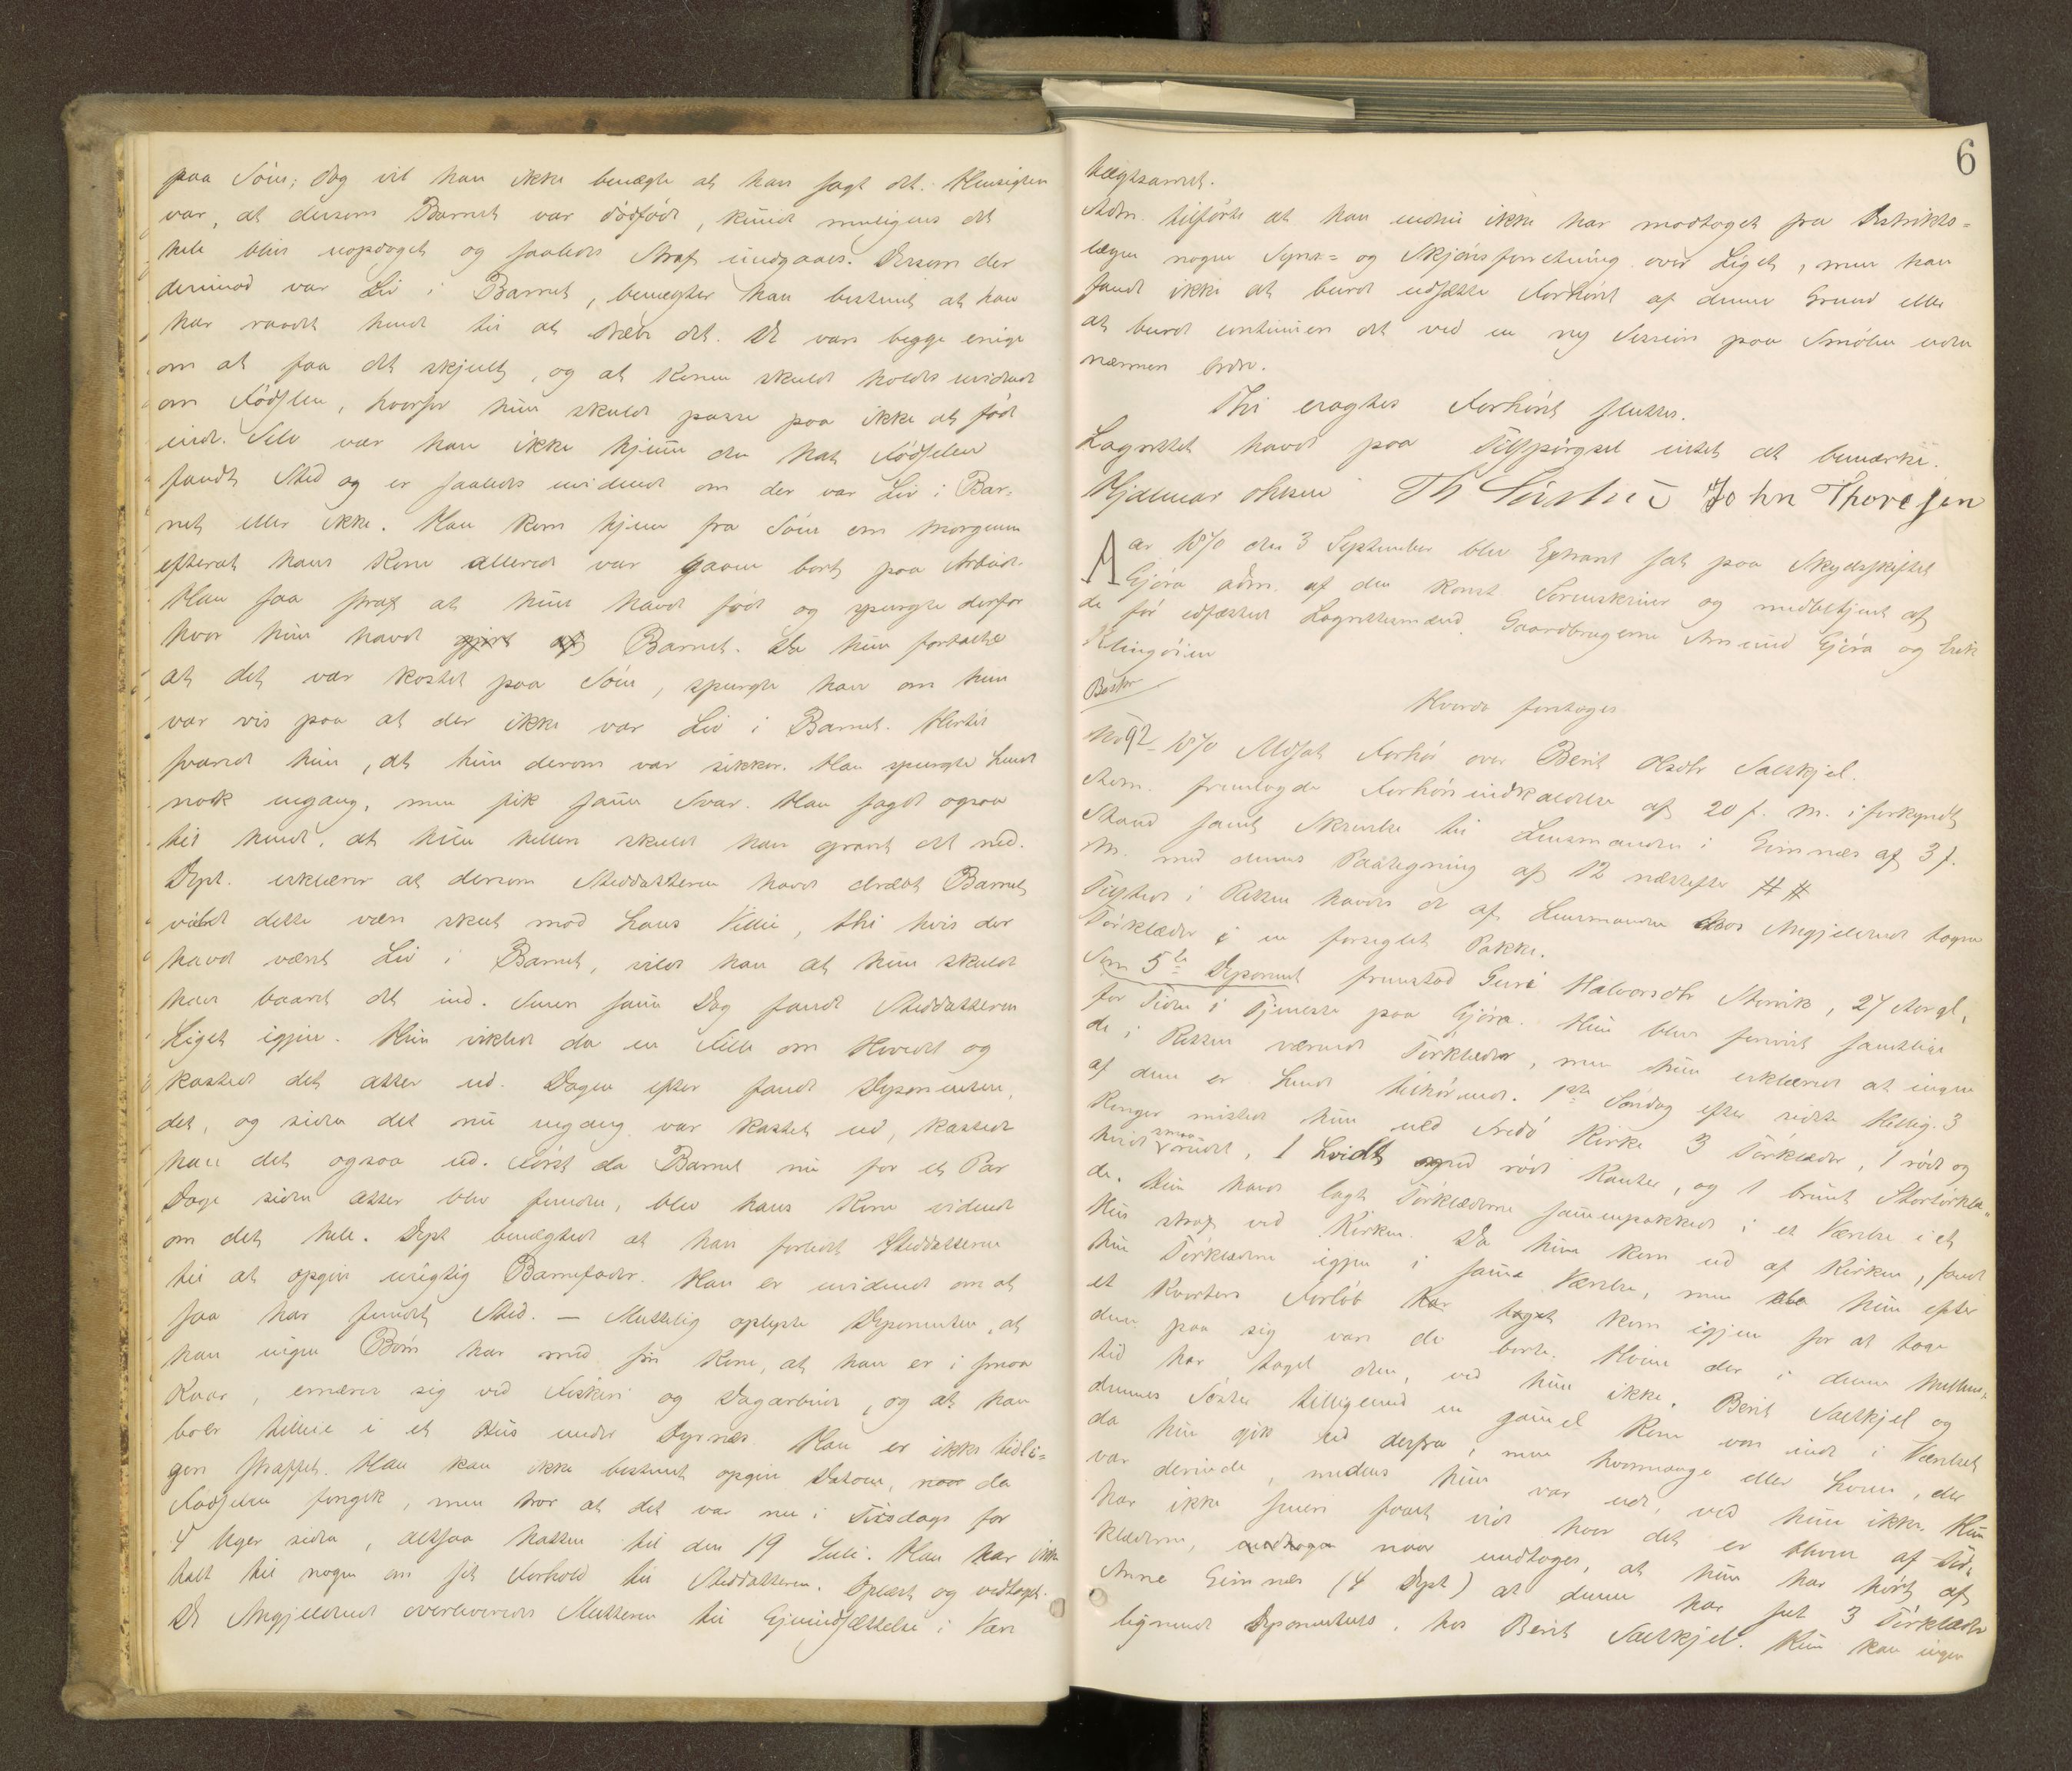 paa Söen; dog vil han ikke benægte at have sagt det. Hensigten
var, at dersom Barnet var dödfödt, kunde muligens det
hele blive uopdaget og saaledes Straf undgaaes. Dersom der
derimod var Liv i Barnet, benægter han bestemt at have
har raadet hende til at dræbe det. De vare begge enige
om at faa det skjult, og at Konen skulde holdes uvidende
om Födslen, hvorfor hun skulde passe paa ikke at föde
inde. Selv var han ikke hjemme den Nat Födselen
fandt Sted og er saaledes uvidende om der var Liv i Bar-
net eller ikke. Han kom hjem fra Söen om Morgenen
efterat hans Kone allerede var gaaen bort paa Arbeide.
Han saa strax at hun havde födt og spurgte derfor
hvor hun havde gjort af Barnet. Da hun fortalte
at det var kastet paa Söen, spurgte han om hun
var vis paa at der ikke var Liv i Barnet. Hertil
svarede hun, at hun derom var sikker. Han spurgte hende
nok engang, men fik samme Svar. Han sagde ogsaa
til hende, at hun hellere skulde have gravet det ned.
Dept. erklærer at dersom Steddatteren havde dræbt Barnet
vilde dette være skeet mod hans Villie, thi hvis der
havde været Liv i Barnet, vilde han at hun skulde
have baaret det ind. Senere samme Dag fandt Steddatteren
Liget igjen. Hun viklede da en Fille om Hovedet og
kastede det atter ud. Dagen efter fandt Deponenten
det, og siden det nu engang var kastet ud, kastede
han det ogsaa ud. Först da Barnet nu for et Par
Dage siden atter blev funden, blev hans Kone vidende
om det hele. Dept benægtede at have forledet Steddatteren
til at opgive urigtig Barnefader. Han er uvidende om at
saa har fundet Sted. — Mettelig oplyste Deponenten, at
han ingen Börn har med sin Kone, at han er i smaa
Kaar, ernærer sig ved Fiskeri og Dagarbeide, og at han
boer tilleie i et Hus under Dyrnæs. Han er ikke tidli-
gere straffet. Han kan ikke bestemt opgive Datoen, naar da
Födselen foregik, men tror at det var nu i Tirsdags for
4 Uger siden, altsaa Natten til den 19 Juli. Han har ikke
talt til nogen om sit Forhold til Steddatteren. Oplæst og vedtaget.
De Angjeldende overleveredes Mutteren til Gjenindsættelse i Vare
6
tægtsarrest.
Adm. tilförte at han endnu ikke har modtaget fra Distrikts-
lægen nogen Syns- og Skjönsforretning over Liget, men han
fandt ikke at burde udsætte Forhöret af denne Grund eller
at burde continuere det ved en ny Session paa Smölen uden
nærmere Ordre.
Thi eragtes Forhöret sluttes.
Lagrettet havde paa Tilspörgsel intet at bemærke.
Hjalmar Olsen Th John Thoresen
Aar 1870 den 3 September blev Extraret sat paa Skydsskiftet
Gjöra adm. af den konst Sorenskriver og medbetjent af
de för edfæstede Lagrettesmænd. Gaardbrugerne Amund Gjöra og Erik
Klingöien
Hvorda foretoges
No 92 - 1870 Udsat Forhör over Berit Olsdtr Saltkjel.
Adm. fremlagde Forhörsindkaldelse af 20 f. M. i forkyndt
Stand samt Skrivelse til Lensmanden i Gimnæs af 3 f.
M. med dennes Paategning af 12 næstefter ## ##
Tilstede i Retten havdes de af Lensmanden hos Angjeldende tagne
Törklæder i en forseglet Pakke.
Som 5te Deponent fremstod Guri Halvorsdtr Storvik, 27 Aar gl,
for Tiden i Tjeneste paa Gjöra. Hun blev forevist samtlige
de i Retten værende Törklæder, men hun erklærede at ingen
af dem er hende tilhörende. 1ste Söndag efter sidste Hellig-3
Konger mistede hun ved Tredö Kirke 3 Törklæder, 1 rödt og
hvidt smaarudet, 1 hvidt med röde Kanter, og 1 brunt Stortörklæ-
de. Hun havde lagt Törklæderne sammenpakkede i et Værelse i et
Hus strax ved Kirken. Da hun kom ud af Kirken, fandt
hun Törklæderne igjen i samme Værelse, men da hun efter
et Kvarters Forlöb har taget kom igjen for at tage
dem paa sig vare de borte. Hvem der i denne Mellem-
tid har taget dem, ved hun ikke. Berit Saltkjel og
dennes Söster tilligemed en gammel Kone var inde i Værelset
da hun gik ud derfra, men hvormange eller hvem, der
var derinde, medens hun var ude, ved hun ikke. Hun
har ikke senere faaet vide hvor det er bleven af Tör-
klæderne, undtagen naar undtages, at hun har hört af
Anne Gimnæs (4 Dept) at denne har seet 3 Törklæder
lignende Deponentens, hos Berit Saltkjel. Hun kan ingen